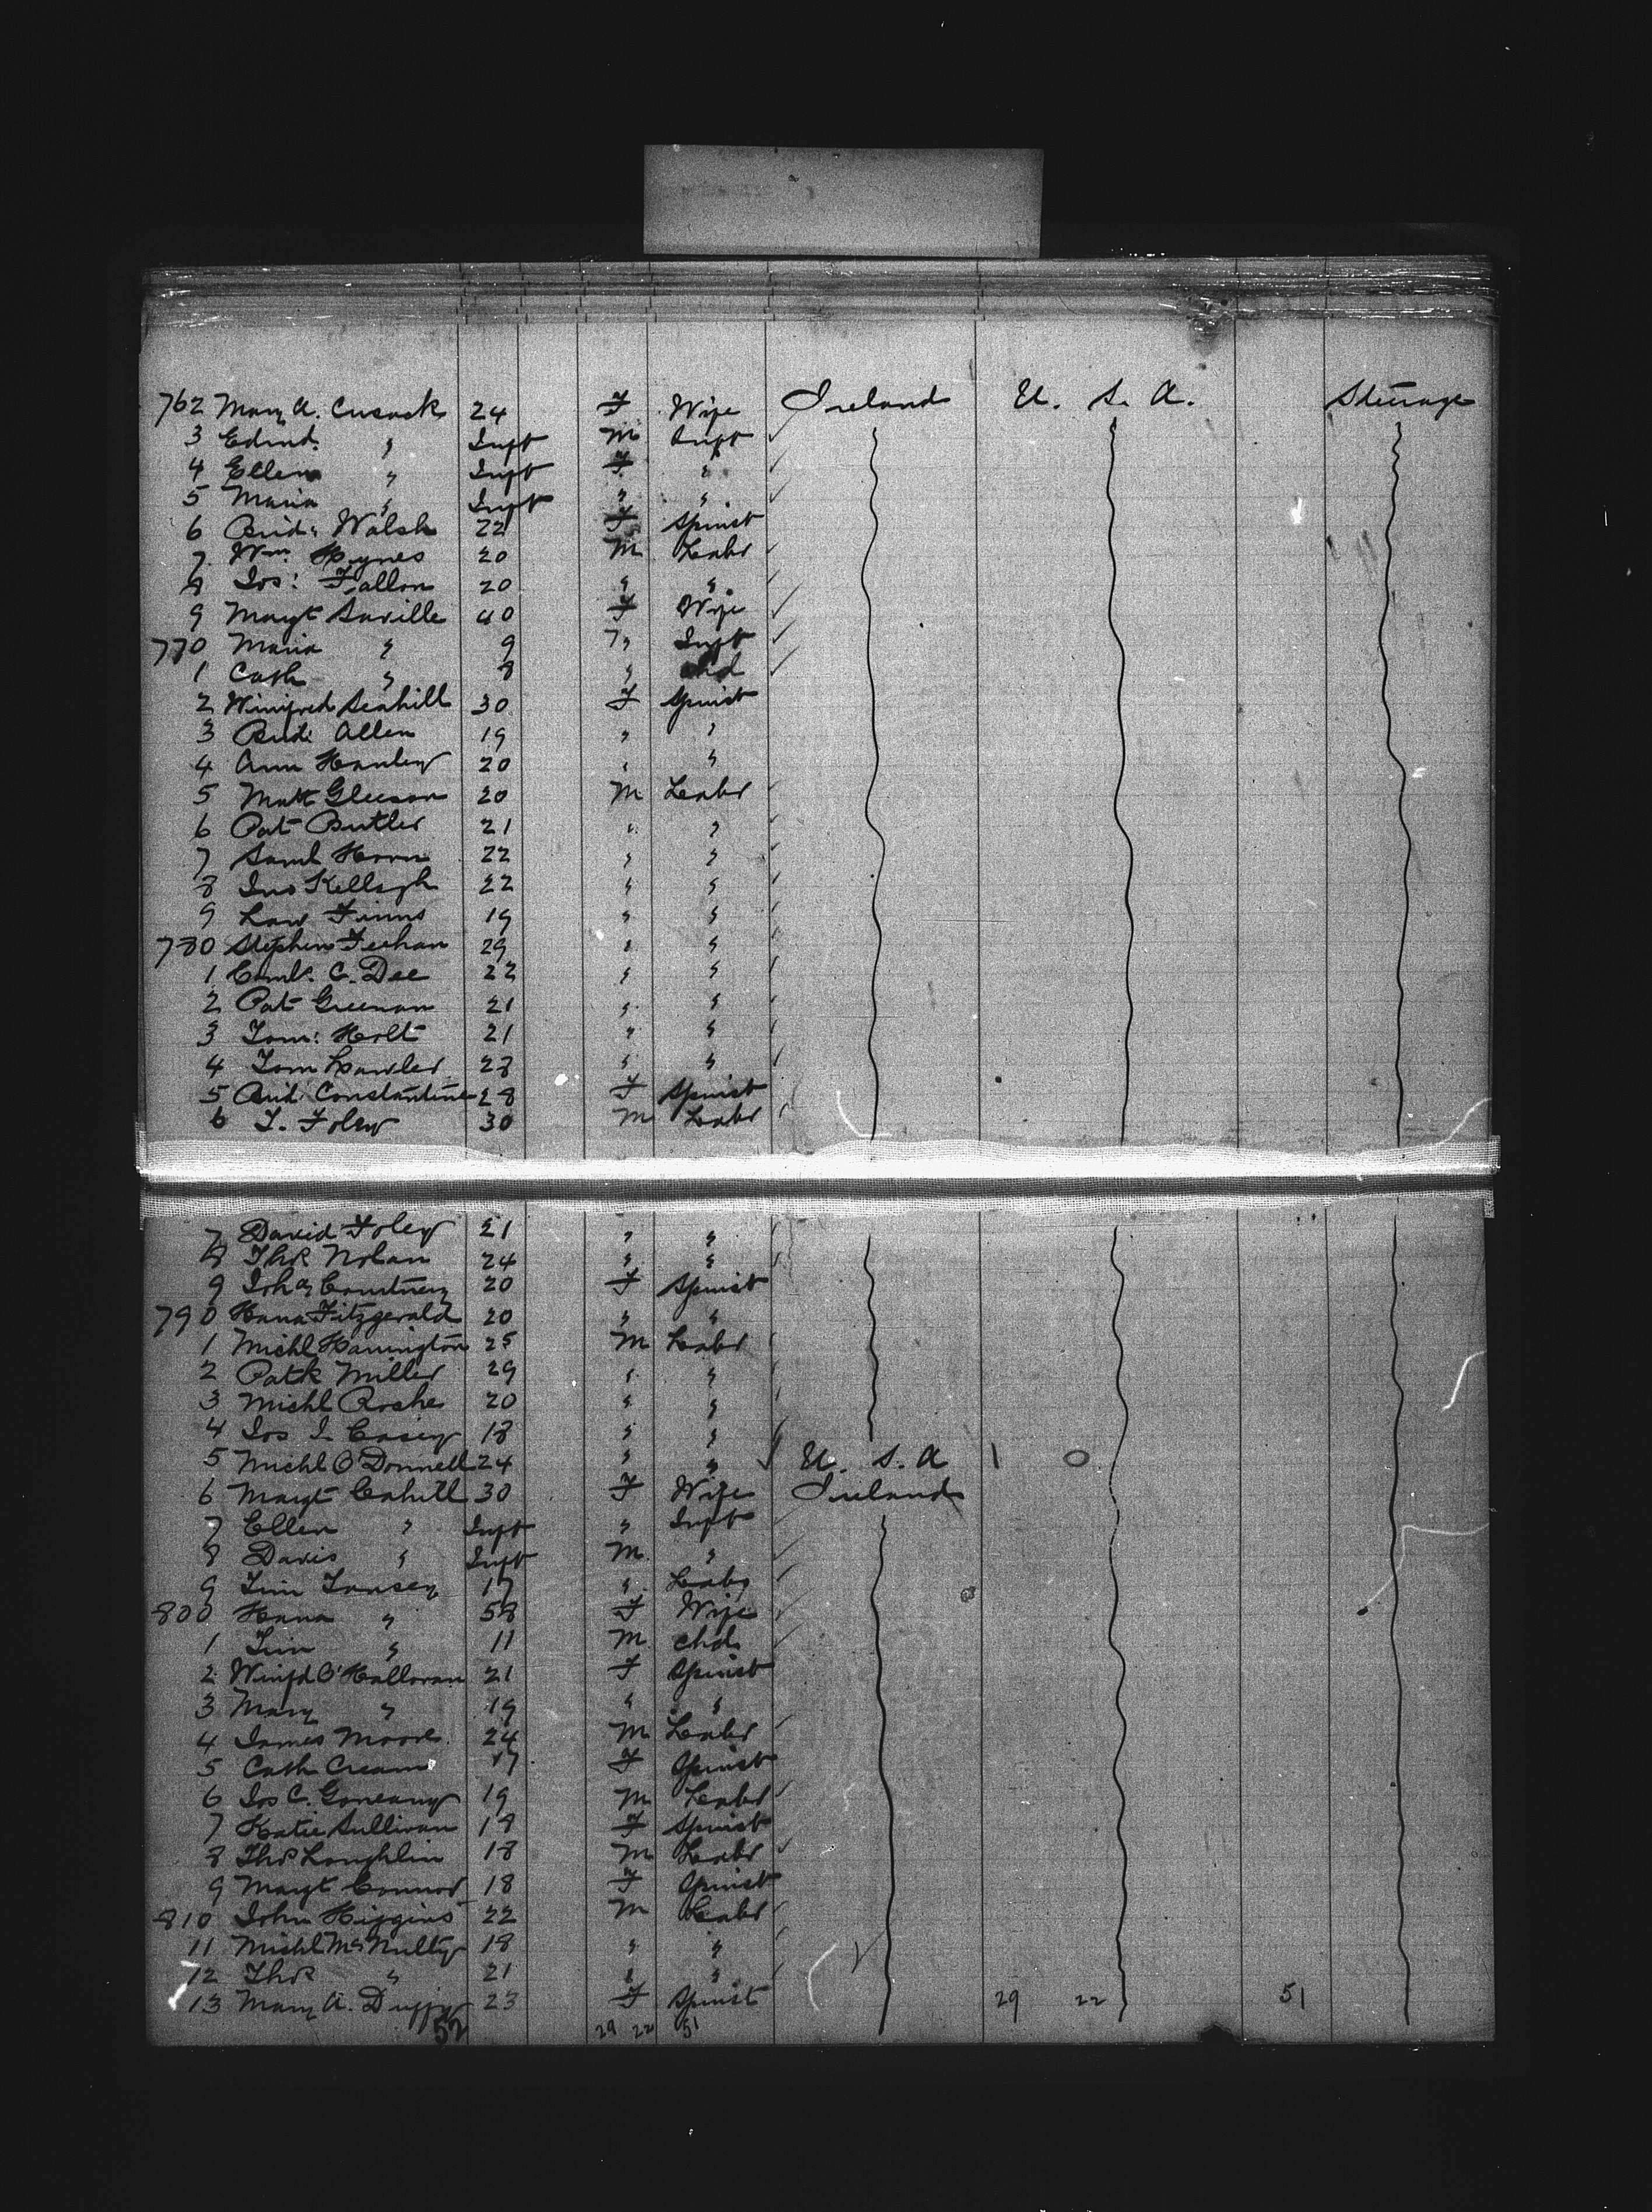 762 Mary A. Cusack 24 F Wife Ireland U. S. A. Steerage
3 Edmd. " Inft M Inft
4 Ellen " Inft F "
5 Maria " Inft " "
6 Brid: Walsh 22 F Spinst
7 Wm. Hynes 20 M Labr
8 Jos: Fallon 20 " "
9 Margt Saville 40 F Wife
770 Maria " 9 " Inft
1 Cath " 8 " chd
2 Winifred Scahill 30 F Spinst
3 Brid: Allen 19 " "
4 Ann Hanley 20 " "
5 Matt Gleeson 20 M Labr
6 Pat Butler 21 " "
7 Saml Horn 22 " "
8 Jno Kellagh 22 " "
9 Law Finns 19 " "
780 Stephen Feehan 29 " "
1 C. Dee 22 " "
2 Pat Greenan 21 " "
3 Tom: Holt 21 " "
4 Tom Lawler 28 " "
5 Brid: Constantine 28 F Spinst
6 T. Foley 30 M Labr
7 David Foley 21 " "
8 Thos Nolan 24 " "
9 Joha Courtney 20 F Spinst
790 Hana Fitzgerald 20 " "
1 Michl Harrington 25 M Labr
2 Patk Miller 29 " "
3 Michl Roche 20 " "
4 Jos J. Casey 18 " "
5 Michl O'Donnell 24 " " U. S. A 1 0
6 Margt Cahill 30 F Wife Ireland
7 Ellen " Inft " Inft
8 Davis " Inft M "
9 Tim Tansey 17 " Labr
800 Hana " 58 F Wife
1 Tim " 11 M chd
2 Winfd O'Halloran 21 F Spinst
3 Mary " 19 " "
4 James Moore 24 M Labr
5 Cath Crean 17 F Spinst
6 Jos C. 19 M Labr
7 Katie Sullivan 18 F Spinst
8 Thos Loughlin 18 M Labr
9 Margt Connor 18 F Spinst
810 John Higgins 22 M Labr
11 Michl McNulty 18 " "
12 Thos " 21 " "
13 Mary A. Duffy 23 F Spinst 29 22 51
52 29 22 51